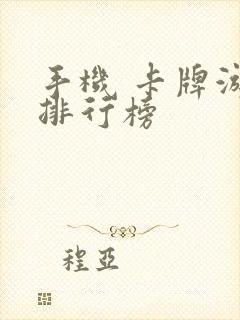 手機 卡牌游
排行榜
程亞